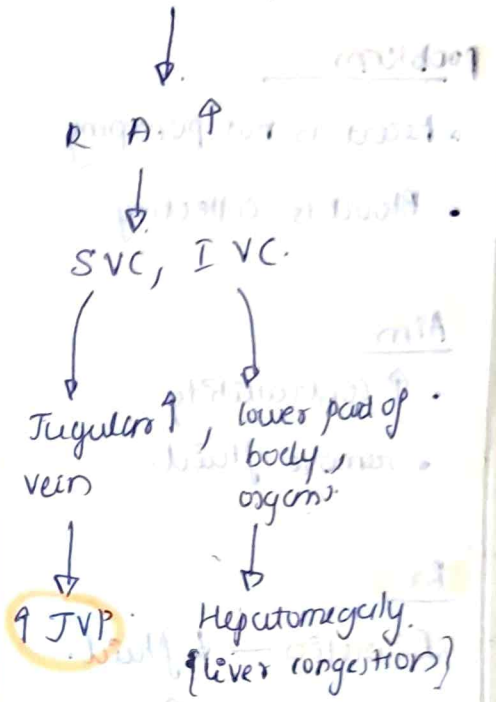 R A ↑
SVC, IVC.
Jugular ↑, lower part of
vein body,
organs
↑ JVP. Hepatomegaly.
{liver congestion}